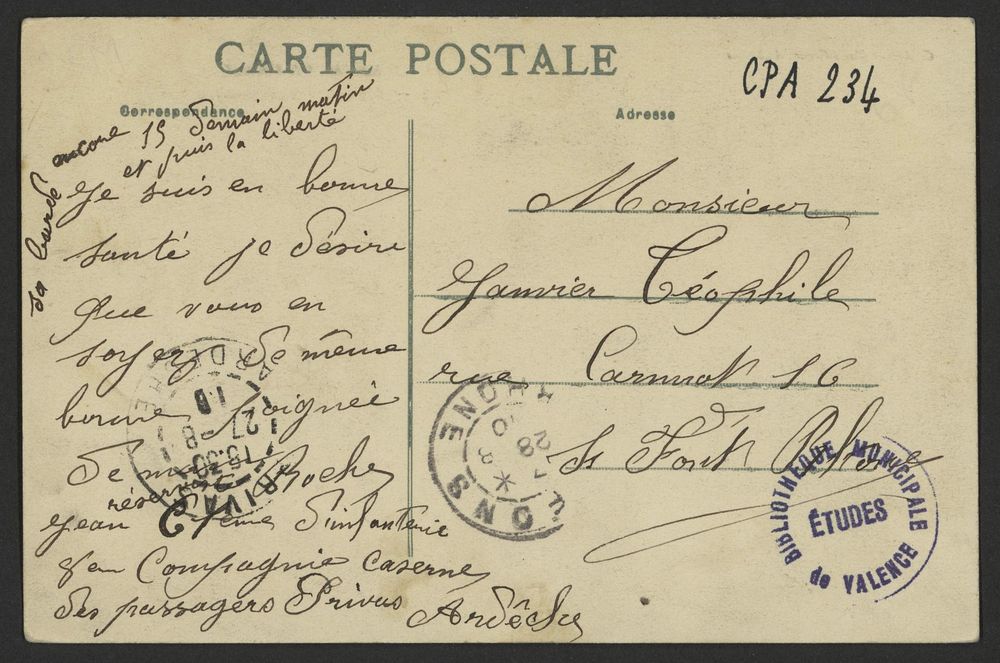 CARTE POSTALE
CPA 234
Correspondance
Adresse
encore 15 Demain matin
et puis la liberté
Je suis en bonne
santé je désire
que vous en
soyez de même
bonne poignée
De main Roche
réserviste
Jean 61eme D'infanterie
8em Compagnie caserne
des passagers Privas Ardèche
Monsieur
Janvier Téophile
rue Carnnot 16
St Font Rhone
PRIVAS
ARDECHE
15.30
27-8
10
RHONE
27
8
10
BIBLIOTHEQUE MUNICIPALE
ÉTUDES
de VALENCE